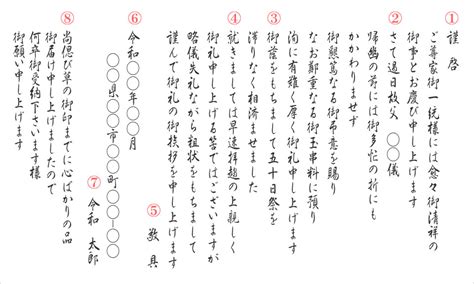 ① 謹啓
ご尊家御一統様には愈々御清祥の
御事とお慶び申し上げます
② さて過日故父 〇〇儀
帰幽の前には御多忙の折にも
かかわりませず
御懇篤なる御弔意を賜り
なお鄭重なる御玉串料に預り
洵に有難く厚く御礼申し上げます
③ 御蔭をもちまして五十日祭を
滞りなく相済ませました
④ 就きましては早速拝趨の上親しく
御礼申し上げる筈ではございますが
略儀失礼ながら粗状をもちまして
謹んで御礼の御挨拶を申し上げます
⑤ 敬具
⑥ 令和〇〇年〇〇月
〇〇県〇〇市〇〇町〇〇ー〇〇
⑦ 令和 太郎
⑧ 尚偲び草の御印までに心ばかりの品
御届け申し上げましたので
何卒御受納下さいます様
御願い申し上げます